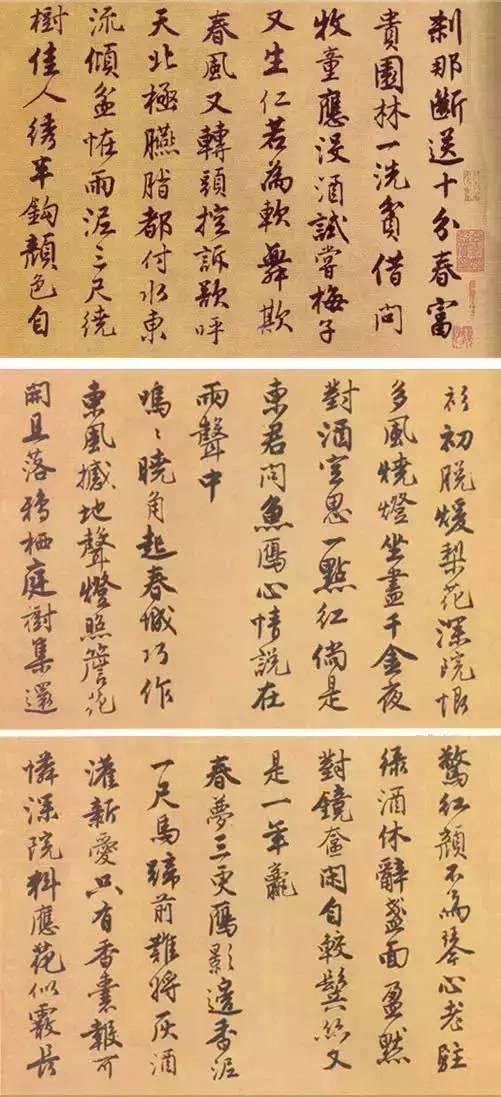 剎那斷送十分春富
貴園林一洗貧借問
牧童應沒酒試嘗梅子
又生仁若為軟舞欺
春風又轉頭控訴欲呼
天北極臙脂都付水東
流傾盆怪雨泥三尺繞
樹佳人綉半鈎顏色自
衫初脫煖梨花深院恨
多風燒燈坐盡千金夜
對酒空思一點紅倘是
東君問魚鴈心情說在
雨聲中
嗚〻曉角起春城巧作
東風撼地聲燈照簷花
開且落鴉栖庭樹集還
驚紅顏不為琴心老駐
綠酒休辭盞面盈默
對鏡奩閑自較鬢絲又
是一年
春夢三更鴈影邊香泥
一尺馬蹄前難將灰酒
灌新愛只有香囊報可
憐深院料應花似霰長